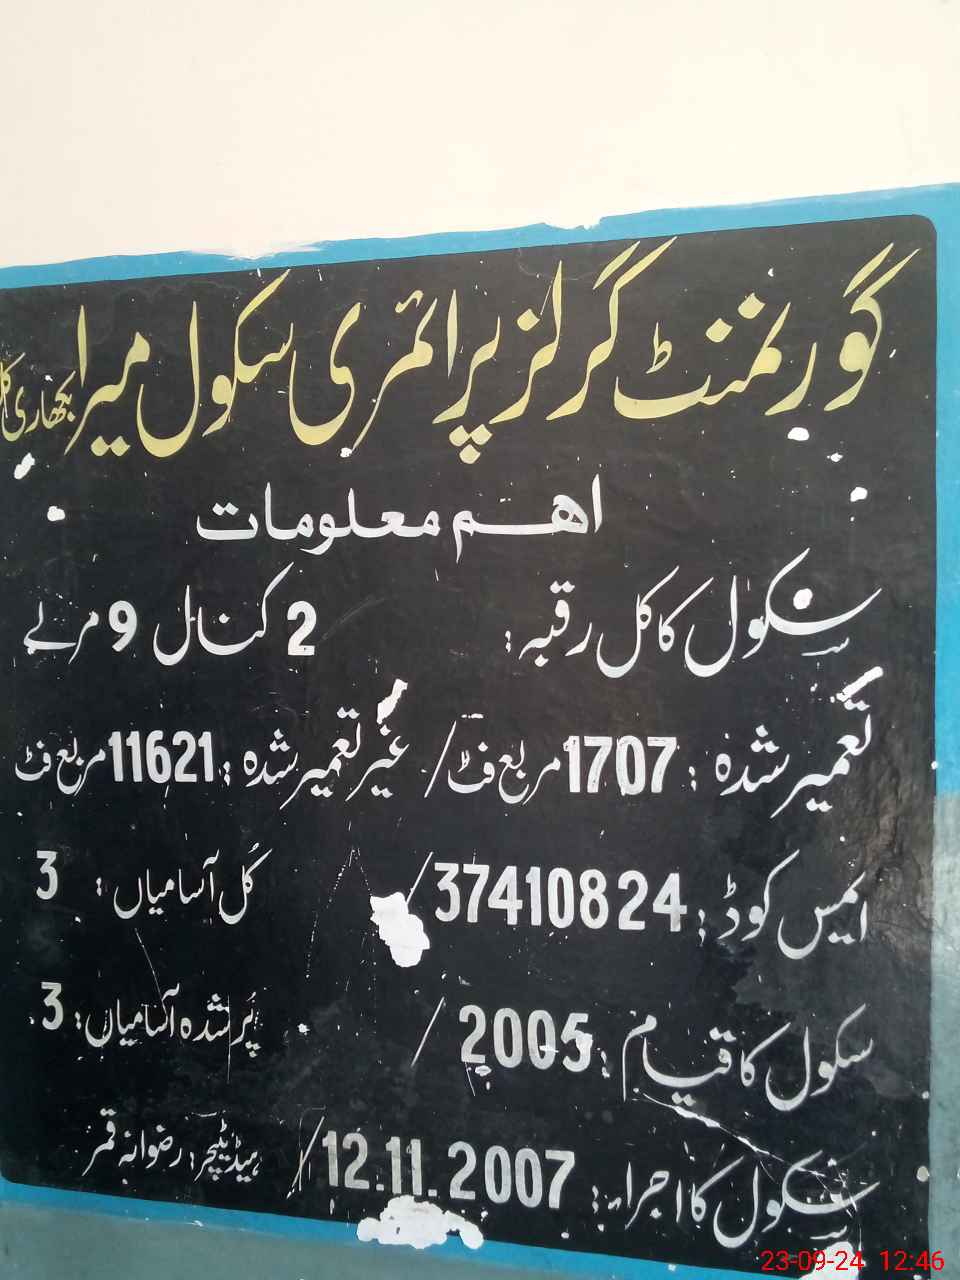 گورنمنٹ گرلز پرائمری سکول میرا بکھاری کل
اہم معلومات
سکول کا کل رقبہ : 2 کنال 9 مرلے
تعمیر شدہ : 1707 مربع فٹ / غیر تعمیر شدہ : 11621 مربع فٹ
ایمس کوڈ : 37410824 / کُل آسامیاں : 3
سکول کا قیام : 2005 / پُر شدہ آسامیاں : 3
سکول کا اجراء : 12.11.2007 / ہیڈ ٹیچر : رضوانہ قمر
23-09-24 12:46